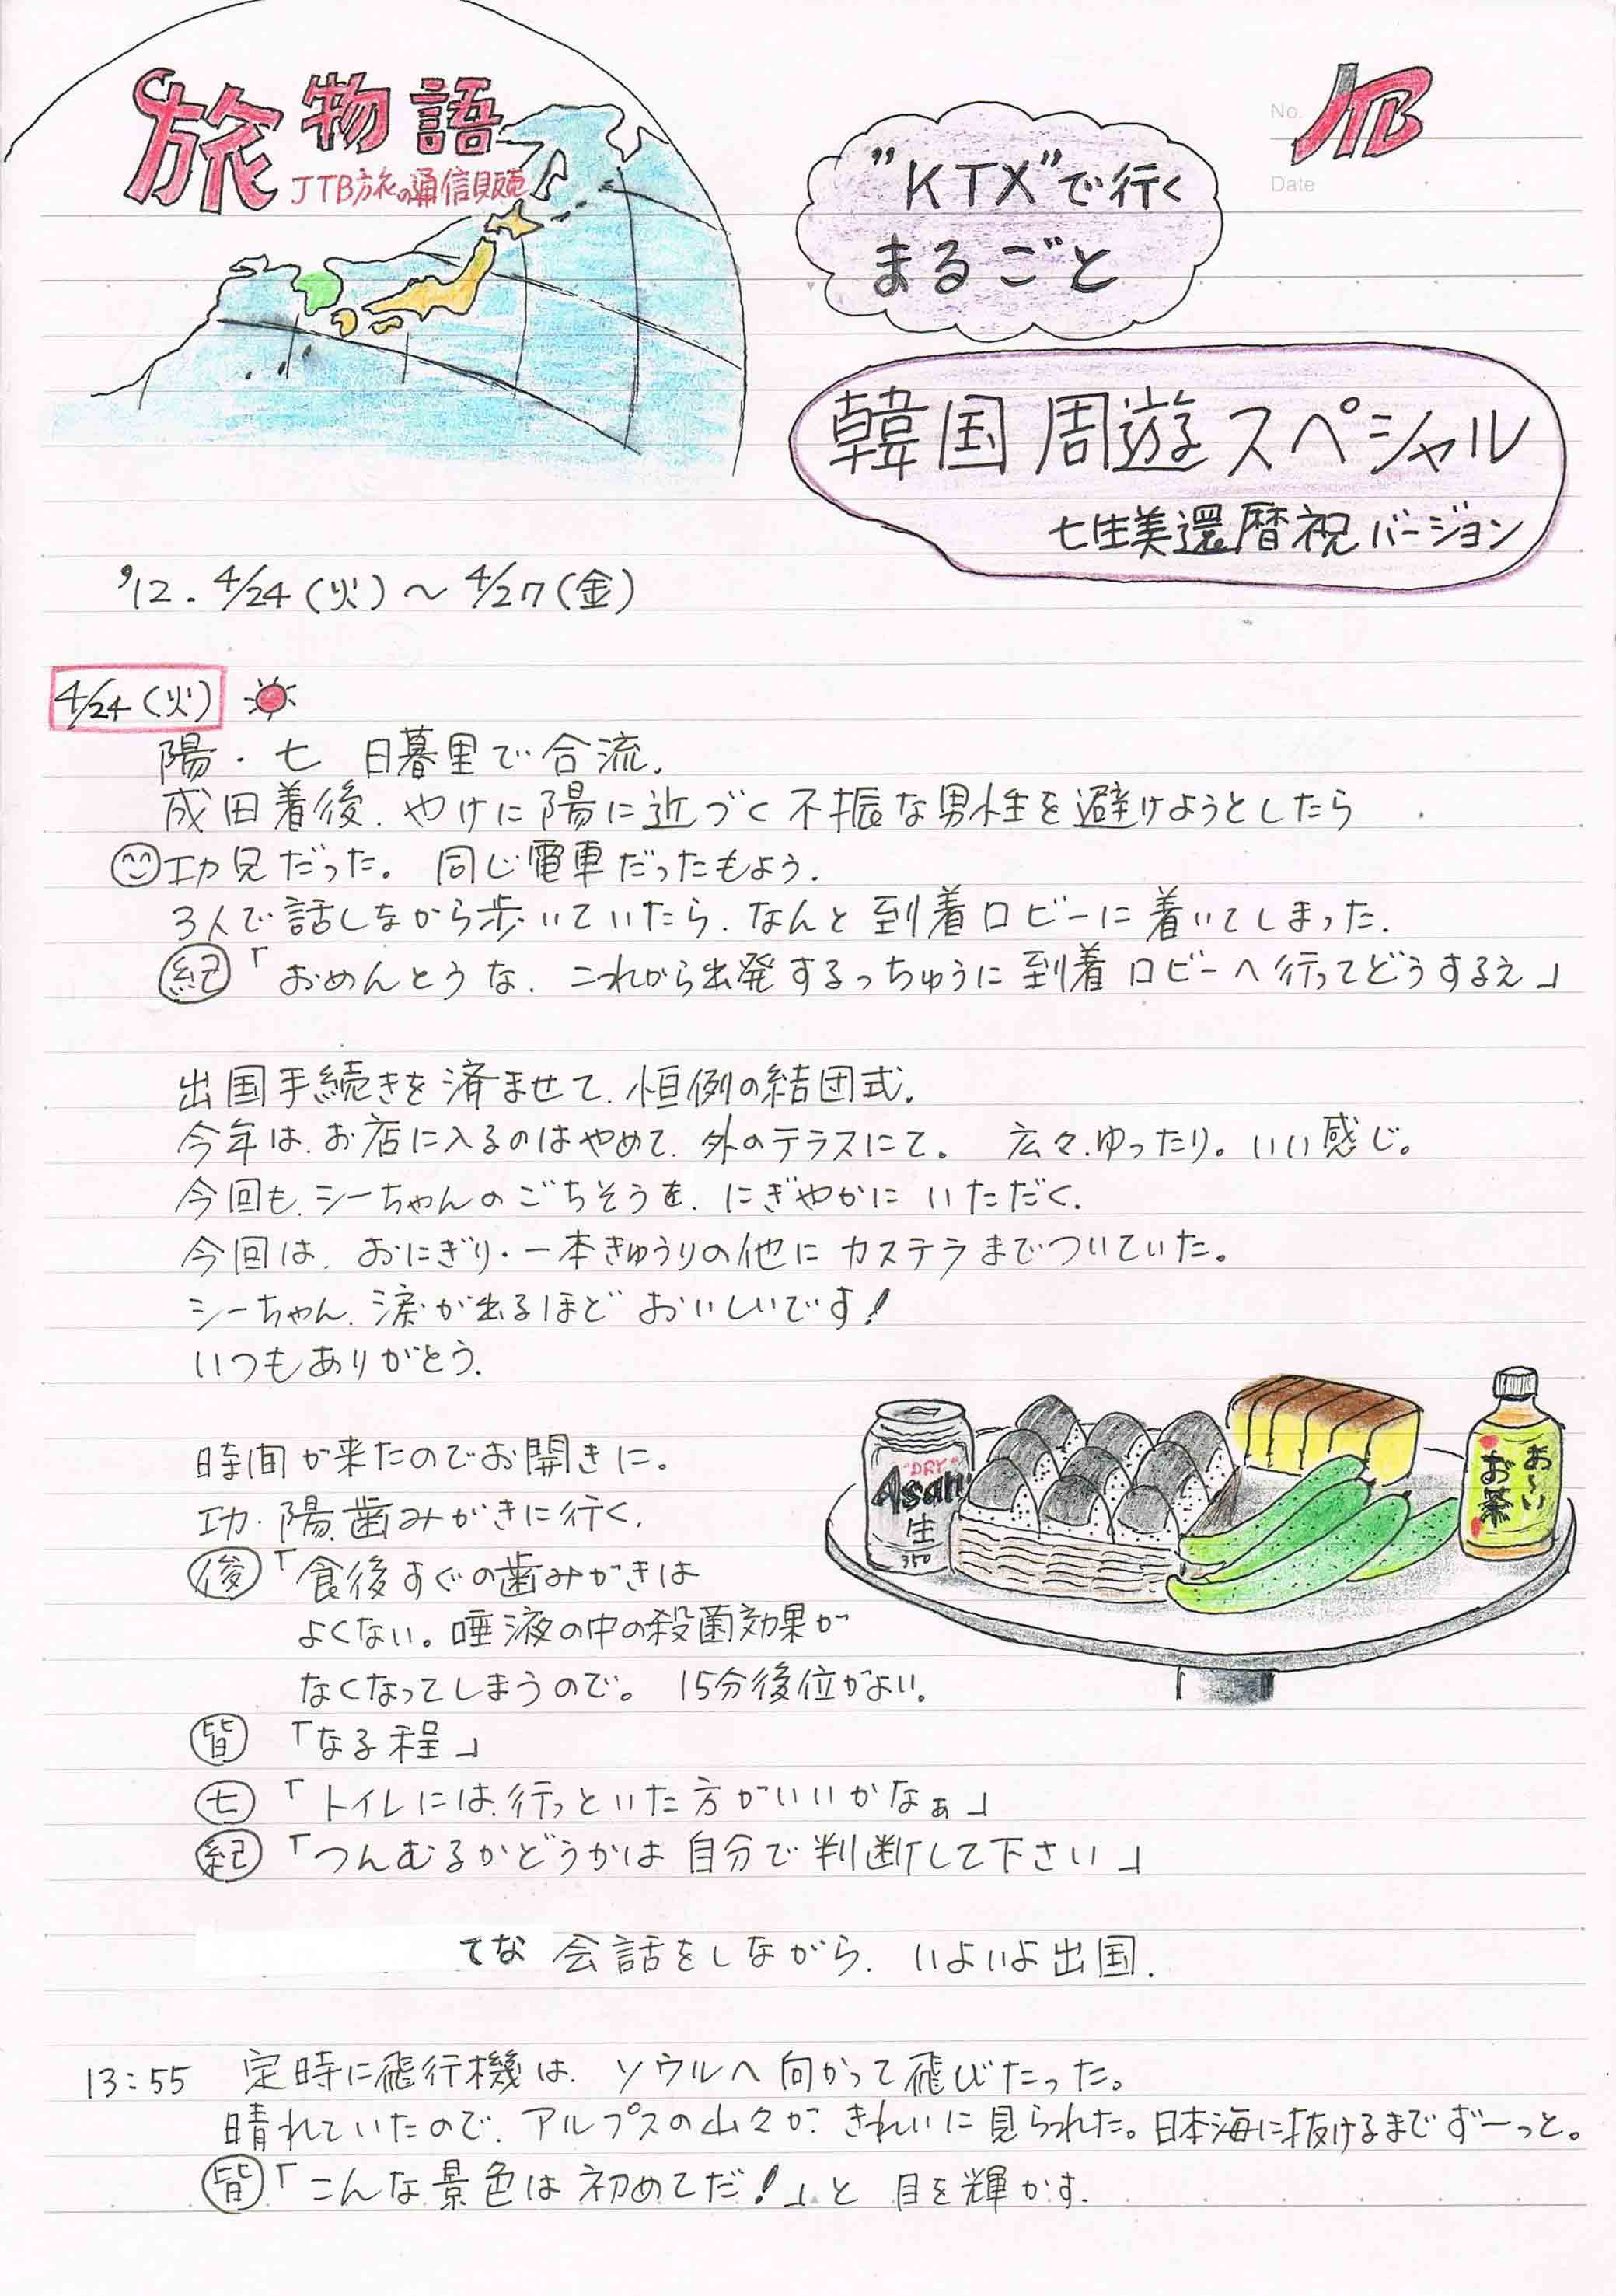 旅物語
JTB旅の通信販売
"KTX"で行く
まるごと
No.
JTB
Date
韓国周遊スペシャル
七生美還暦祝バージョン
'12. 4/24(火)〜4/27(金)
4/24(火)
陽・七 日暮里で合流.
成田着後、やけに陽に近づく不振な男性を避けようとしたら
功兄だった。同じ電車だったもよう.
3人で話しながら歩いていたら、なんと到着ロビーに着いてしまった.
紀「おめんとうな、これから出発するっちゅうに到着ロビーへ行ってどうするえ」
出国手続きを済ませて、恒例の結団式.
今年は、お店に入るのはやめて、外のテラスにて。 広々、ゆったり。いい感じ。
今回も、シーちゃんのごちそうを、にぎやかに いただく.
今回は、おにぎり・一本きゅうりの他に カステラまでついていた。
シーちゃん、涙が出るほど おいしいです!
いつもありがとう.
時間が来たのでお開きに。
功・陽、歯みがきに行く.
俊「食後すぐの歯みがきは
よくない。唾液の中の殺菌効果が
なくなってしまうので。 15分後位がよい.
皆「なる程」
七「トイレには、行っといた方がいいかなぁ」
紀「つんむるかどうかは 自分で判断して下さい」
"DRY"
Asahi
生
350
お〜い
お茶
てな 会話をしながら、いよいよ出国.
13:55 定時に飛行機は、ソウルへ向かって飛びたった。
晴れていたので、アルプスの山々が、きれいに見られた。日本海に抜けるまでずーっと。
皆「こんな景色は初めてだ!」と 目を輝かす.